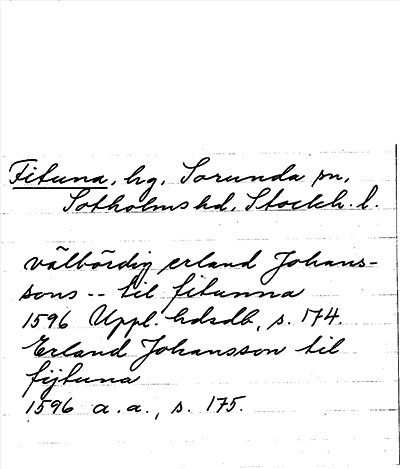 Fituna, hg, Sorunda sn,
Sotholms hd, Stockh. l.
välbördig erland Johans-
sons -- til fitunna
1596 Uppl. hdsdb, s. 174.
Erland Johansson til
fijtuna
1596 a. a., s. 175.